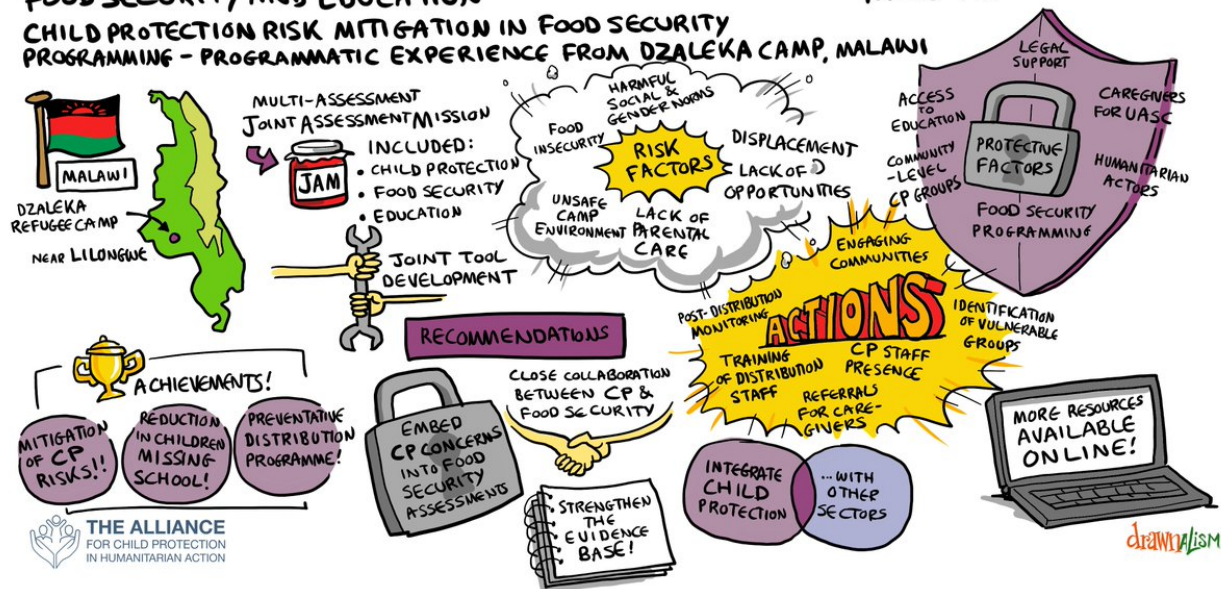 FOOD SECURITY AND EDUCATION
CHILD PROTECTION RISK MITIGATION IN FOOD SECURITY
PROGRAMMING - PROGRAMMATIC EXPERIENCE FROM DZALEKA CAMP, MALAWI
MALAWI
DZALEKA
REFUGEE CAMP
NEAR LILONGWE
MULTI-ASSESSMENT
JOINT ASSESSMENT MISSION
JAM
INCLUDED:
• CHILD PROTECTION
• FOOD SECURITY
• EDUCATION
JOINT TOOL
DEVELOPMENT
RISK
FACTORS
HARMFUL
SOCIAL &
GENDER NORMS
FOOD
INSECURITY
DISPLACEMENT
LACK OF
OPPORTUNITIES
UNSAFE
CAMP
ENVIRONMENT
LACK OF
PARENTAL
CARE
PROTECTIVE
FACTORS
LEGAL
SUPPORT
ACCESS
TO
EDUCATION
CAREGIVERS
FOR UASC
COMMUNITY
-LEVEL
CP GROUPS
HUMANITARIAN
ACTORS
FOOD SECURITY
PROGRAMMING
ACTIONS
ENGAGING
COMMUNITIES
POST-DISTRIBUTION
MONITORING
IDENTIFICATION
OF VULNERABLE
GROUPS
TRAINING
OF DISTRIBUTION
STAFF
CP STAFF
PRESENCE
REFERRALS
FOR CARE-
GIVERS
ACHIEVEMENTS!
MITIGATION
OF CP
RISKS!!
REDUCTION
IN CHILDREN
MISSING
SCHOOL!
PREVENTATIVE
DISTRIBUTION
PROGRAMME!
RECOMMENDATIONS
EMBED
CP CONCERNS
INTO FOOD
SECURITY
ASSESSMENTS
CLOSE COLLABORATION
BETWEEN CP &
FOOD SECURITY
STRENGTHEN
THE
EVIDENCE
BASE!
INTEGRATE
CHILD
PROTECTION
...WITH
OTHER
SECTORS
MORE RESOURCES
AVAILABLE
ONLINE!
THE ALLIANCE
FOR CHILD PROTECTION
IN HUMANITARIAN ACTION
drawnalism